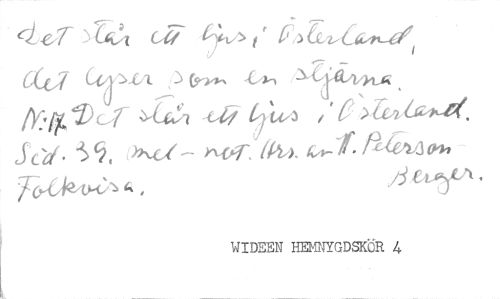 Det står ett ljus i Österland,
det lyser som en stjärna.
N:17. Det står ett ljus i Österland.
Sid. 39. mel-not. Arr. av W. Peterson-
Folkvisa. Berger.
WIDEEN HEMNYGDSKÖR 4